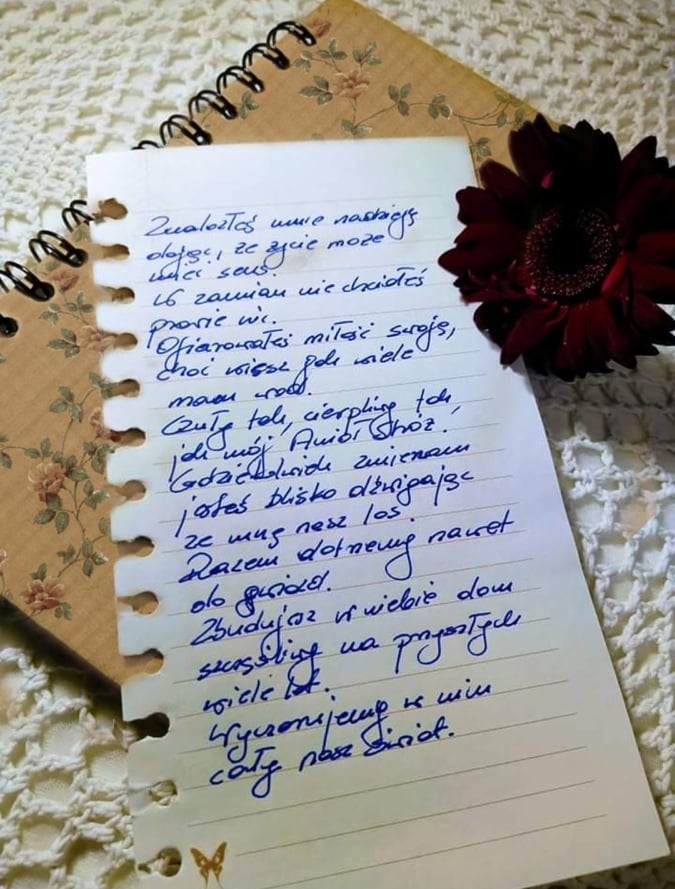 Znalazłeś mnie nadzieję
dając, że życie może
mieć sens.
W zamian nie chciałeś
prawie nic.
Ofiarowałeś miłość swoją,
choć wiesz jak wiele
mam wad.
Czuły tak, cierpliwy tak
jak mój Anioł Stróż.
Gdziekolwiek zmierzam
jesteś blisko dźwigając
ze mną nasz los
Razem dotrzemy nawet
do gwiazd.
Zbudujesz w niebie dom
szczęśliwy na przyszłych
wiele lat.
Wyczarujemy w nim
cały nasz świat.